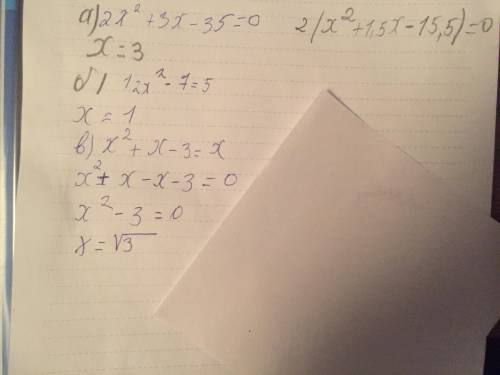 а) 2x² + 3x - 35 = 0 2(x² + 1,5x - 15,5) = 0
x = 3
б) 12x² - 7 = 5
x = 1
в) x² + x - 3 = x
x² + x - x - 3 = 0
x² - 3 = 0
x = √3